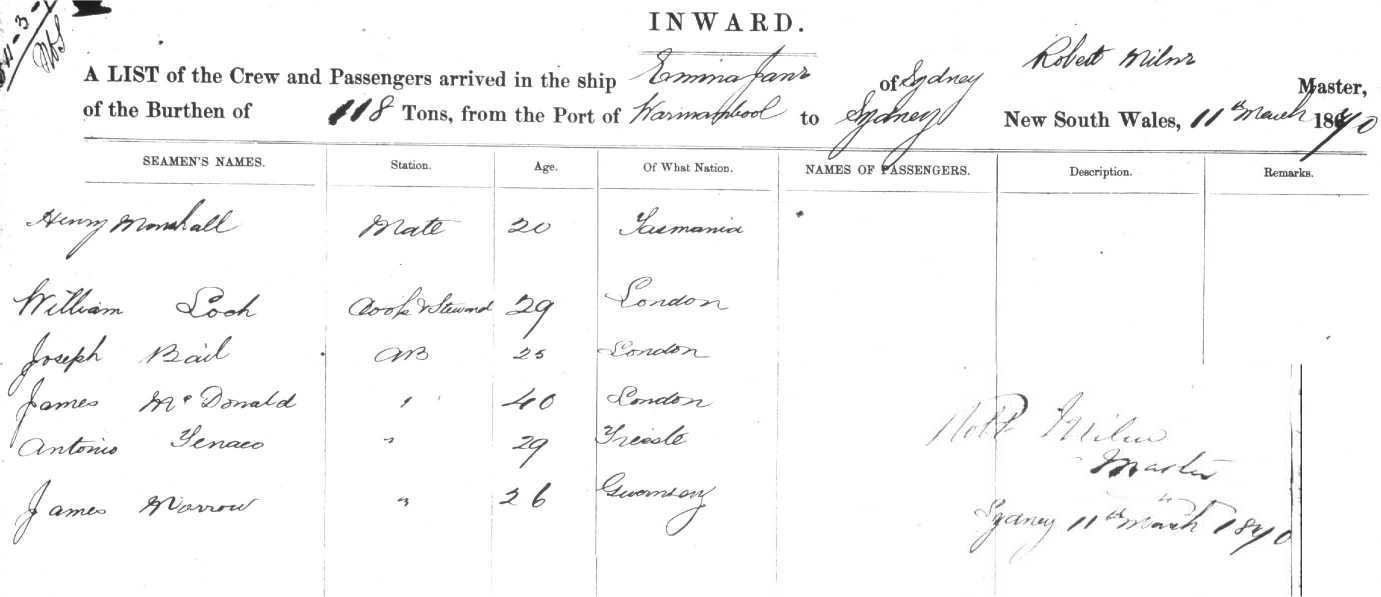 INWARD.
A LIST of the Crew and Passengers arrived in the ship Emma Jane of Sydney Robert Milne Master,
of the Burthen of 118 Tons, from the Port of Warrnambool to Sydney New South Wales, 11th March 1870
SEAMEN'S NAMES. Station. Age. Of What Nation. NAMES OF PASSENGERS. Description. Remarks.
Henry Marshall Mate 20 Tasmania
William Loch Cook & Steward 29 London
Joseph Bail AB 25 London
James McDonald " 40 London
Antonio 29 Trieste
James Morrow " 26 Guernsey
Robt Milne
Master
Sydney 11th March 1870